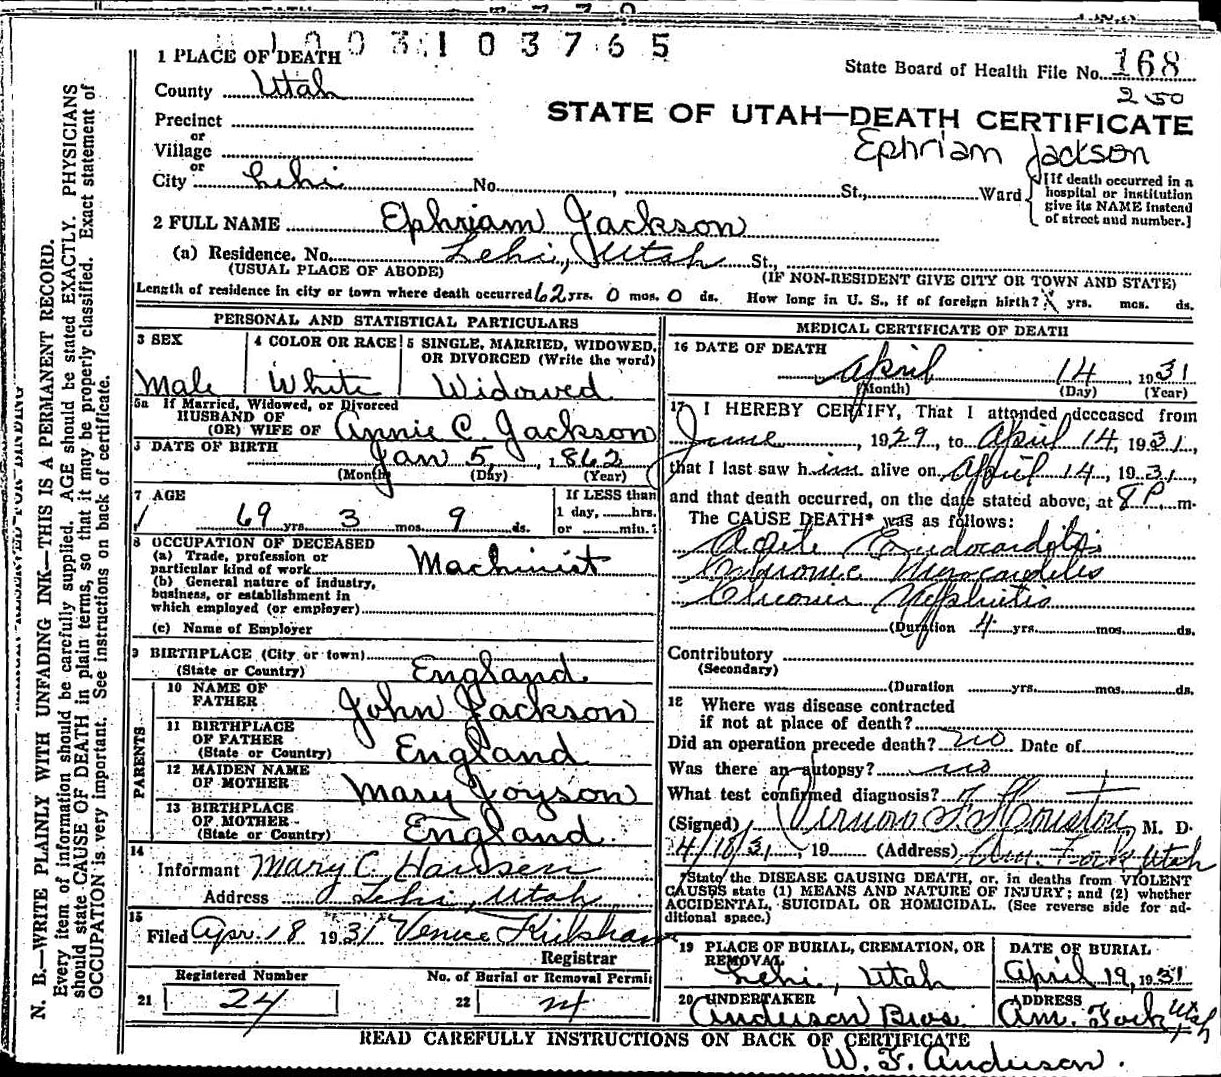 1003103765
1 PLACE OF DEATH
State Board of Health File No. 168
250
County Utah
STATE OF UTAH—DEATH CERTIFICATE
Precinct
or
Ephriam Jackson
Village
or
City Lehi No. , St., Ward
[If death occurred in a
hospital or institution
give its NAME instead
of street and number.]
2 FULL NAME Ephriam Jackson
(a) Residence. No. Lehi, Utah St.,
(USUAL PLACE OF ABODE) (IF NON-RESIDENT GIVE CITY OR TOWN AND STATE)
Length of residence in city or town where death occurred 62 yrs. 0 mos. 0 ds. How long in U. S., if of foreign birth? yrs. mos. ds.
PERSONAL AND STATISTICAL PARTICULARS
3 SEX
Male
4 COLOR OR RACE
White
5 SINGLE, MARRIED, WIDOWED,
OR DIVORCED (Write the word)
Widowed
5a If Married, Widowed, or Divorced
HUSBAND OF
(OR) WIFE OF Annie C. Jackson
6 DATE OF BIRTH
Jan 5, 1862
(Month) (Day) (Year)
7 AGE
69 yrs. 3 mos. 9 ds.
If LESS than
1 day, hrs.
or min.
8 OCCUPATION OF DECEASED
(a) Trade, profession or
particular kind of work Machinist
(b) General nature of industry,
business, or establishment in
which employed (or employer)
(c) Name of Employer
9 BIRTHPLACE (City or town)
(State or Country) England
PARENTS
10 NAME OF
FATHER John Jackson
11 BIRTHPLACE
OF FATHER
(State or Country) England
12 MAIDEN NAME
OF MOTHER Mary Joyson
13 BIRTHPLACE
OF MOTHER
(State or Country) England
14
Informant Mary C. Hansen
Address Lehi, Utah
15
Filed Apr. 18 1931 Venice Kirkham
Registrar
Registered Number
21 24
No. of Burial or Removal Permit
22 24
MEDICAL CERTIFICATE OF DEATH
16 DATE OF DEATH
April 14, 1931
(Month) (Day) (Year)
17 I HEREBY CERTIFY, That I attended deceased from
June, 1929, to April 14, 1931,
that I last saw him alive on April 14, 1931,
and that death occurred, on the date stated above, at 8 P. m.
The CAUSE DEATH* was as follows:
Acute Endocarditis
Chronic Myocarditis
Chronic Nephritis
(Duration 4 yrs. mos. ds.
Contributory
(Secondary)
(Duration yrs. mos. ds.
18 Where was disease contracted
if not at place of death?
Did an operation precede death? no Date of
Was there an autopsy? no
What test confirmed diagnosis?
(Signed) Vernon F. Houston, M. D.
4/18/31, 19 (Address) Am. Fork Utah
*State the DISEASE CAUSING DEATH, or, in deaths from VIOLENT
CAUSES state (1) MEANS AND NATURE OF INJURY; and (2) whether
ACCIDENTAL, SUICIDAL OR HOMICIDAL. (See reverse side for ad-
ditional space.)
19 PLACE OF BURIAL, CREMATION, OR
REMOVAL
Lehi, Utah
DATE OF BURIAL
April 19, 1931
20 UNDERTAKER
Anderson Bros.
ADDRESS
Am. Fork Utah
READ CAREFULLY INSTRUCTIONS ON BACK OF CERTIFICATE
W. F. Anderson.
N. B.—WRITE PLAINLY WITH UNFADING INK—THIS IS A PERMANENT RECORD.
Every item of information should be carefully supplied. AGE should be stated EXACTLY. PHYSICIANS
should state CAUSE OF DEATH in plain terms, so that it may be properly classified. Exact statement of
OCCUPATION is very important. See instructions on back of certificate.